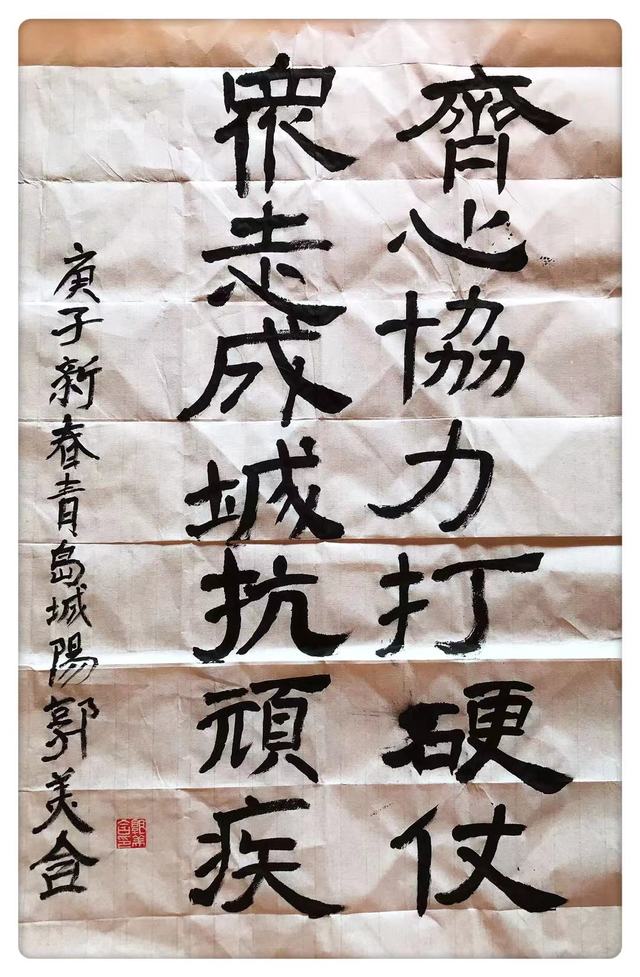 齊心協力打硬仗
眾志成城抗頑疾
庚子新春青島城陽郭美